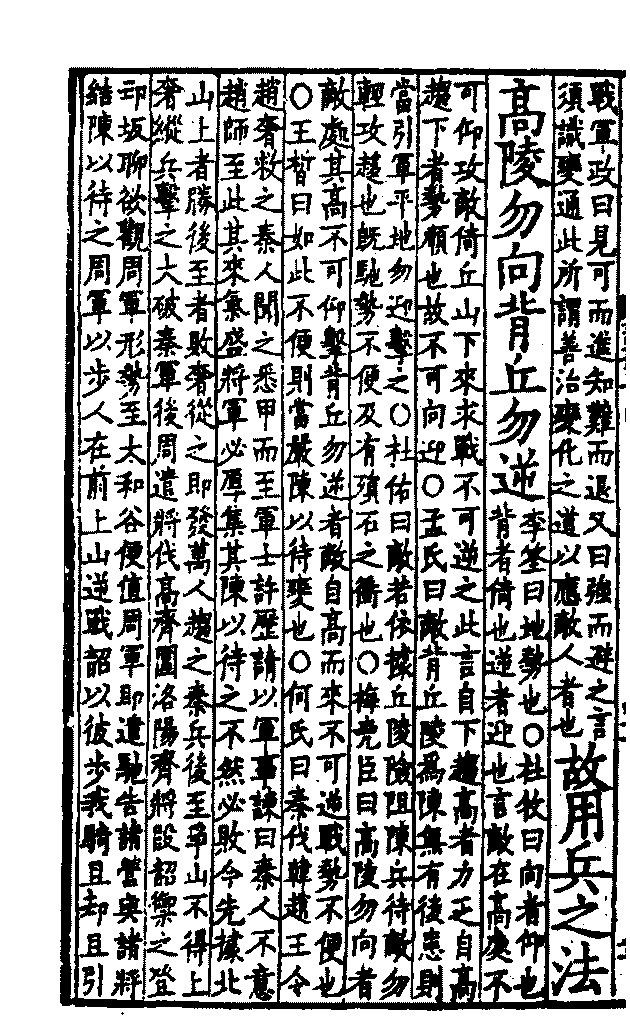 戰軍政曰見可而進知難而退又曰強而避之言
須識變通此所謂善治變化之道以應敵人者也
故用兵之法
高陵勿向背丘勿逆
李筌曰地勢也○杜牧曰向者仰也
背者倚也逆者迎也言敵在高處不
可仰攻敵倚丘山下來求戰不可逆之此言自下趨高者力乏自高
趨下者勢順也故不可向迎○孟氏曰敵背丘陵爲陳無有後患則
當引軍平地勿迎擊之○杜佑曰敵若依據丘陵險阻陳兵待敵勿
輕攻趨也旣馳勢不便及有殞石之衝也○梅堯臣曰高陵勿向者
敵處其高不可仰擊背丘勿逆者敵自高而來不可逆戰勢不便也
○王晳曰如此不便則當嚴陳以待變也○何氏曰秦伐韓趙王令
趙奢救之秦人聞之悉甲而至軍士許歷請以軍事諫曰秦人不意
趙師至此其來氣盛將軍必厚集其陳以待之不然必敗今先據北
山上者勝後至者敗奢從之即發萬人趨之秦兵後至爭山不得上
奢縱兵擊之大破秦軍後周遣將伐高齊圍洛陽齊將段韶禦之登
邙坂聊欲觀周軍形勢至大和谷便值周軍即遣馳告諸營與諸將
結陳以待之周軍以步人在前上山逆戰韶以彼步我騎且却且引